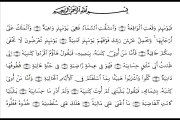 بسم الله الرحمن الرحيم
فَيَوْمَئِذٍ وَقَعَتِ الْوَاقِعَةُ ۝ وَانشَقَّتِ السَّمَاءُ فَهِيَ يَوْمَئِذٍ وَاهِيَةٌ ۝ وَالْمَلَكُ عَلَىٰ
أَرْجَائِهَا ۚ وَيَحْمِلُ عَرْشَ رَبِّكَ فَوْقَهُمْ يَوْمَئِذٍ ثَمَانِيَةٌ ۝ يَوْمَئِذٍ تُعْرَضُونَ لَا تَخْفَىٰ
مِنكُمْ خَافِيَةٌ ۝ فَأَمَّا مَنْ أُوتِيَ كِتَابَهُ بِيَمِينِهِ فَيَقُولُ هَاؤُمُ اقْرَءُوا كِتَابِيَهْ ۝ إِنِّي
ظَنَنتُ أَنِّي مُلَاقٍ حِسَابِيَهْ ۝ فَهُوَ فِي عِيشَةٍ رَّاضِيَةٍ ۝ فِي جَنَّةٍ عَالِيَةٍ ۝ قُطُوفُهَا
دَانِيَةٌ ۝ كُلُوا وَاشْرَبُوا هَنِيئًا بِمَا أَسْلَفْتُمْ فِي الْأَيَّامِ الْخَالِيَةِ ۝ وَأَمَّا مَنْ أُوتِيَ
كِتَابَهُ بِشِمَالِهِ فَيَقُولُ يَا لَيْتَنِي لَمْ أُوتَ كِتَابِيَهْ ۝ وَلَمْ أَدْرِ مَا حِسَابِيَهْ ۝ يَا لَيْتَهَا
كَانَتِ الْقَاضِيَةَ ۝ مَا أَغْنَىٰ عَنِّي مَالِيَهْ ۝ هَلَكَ عَنِّي سُلْطَانِيَهْ ۝ خُذُوهُ فَغُلُّوهُ